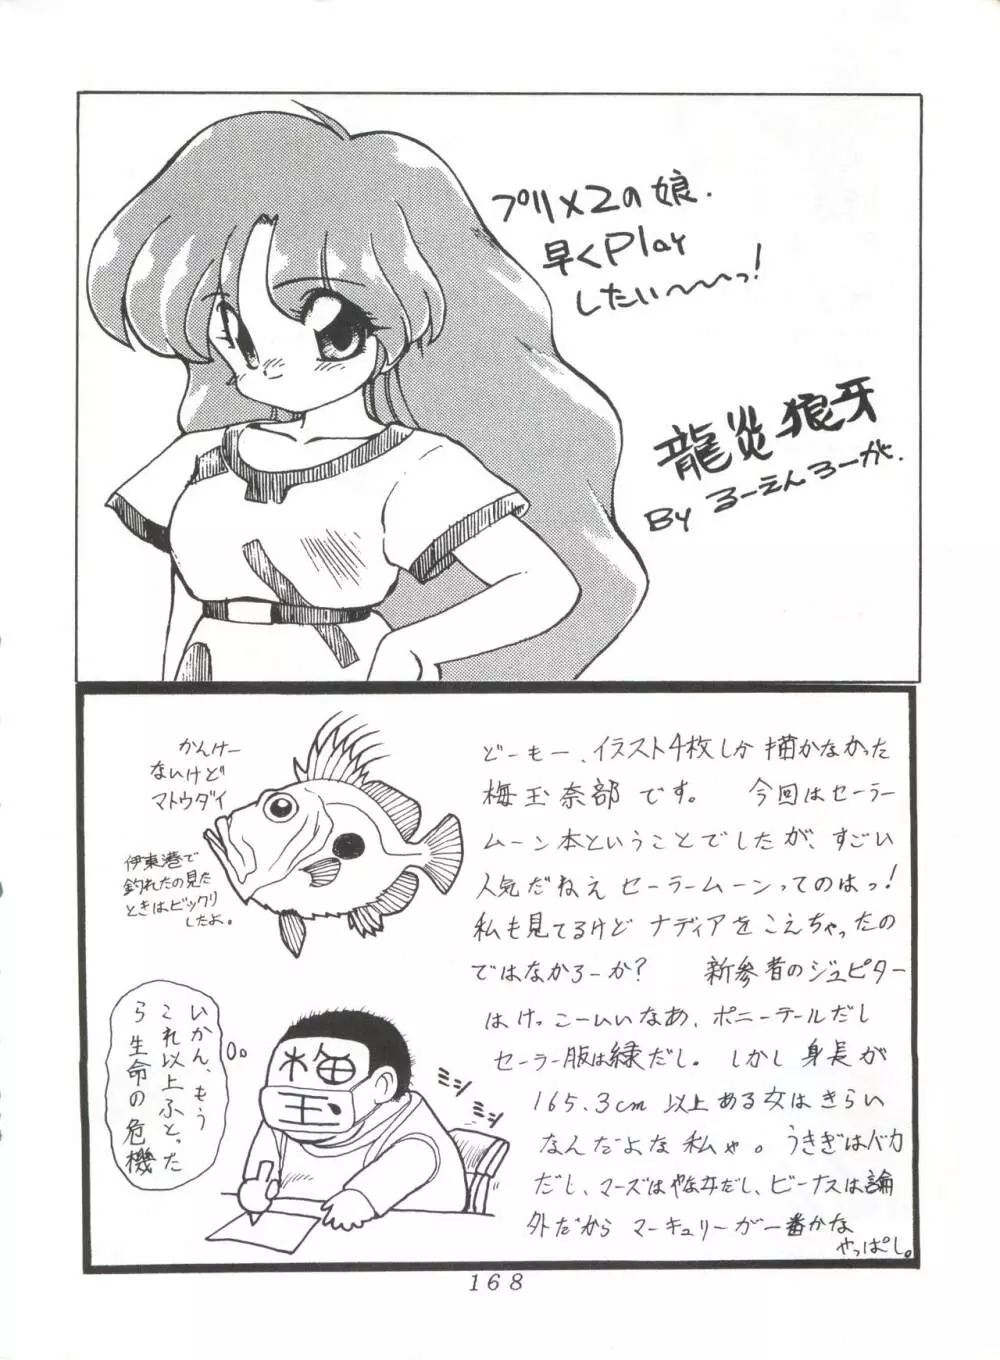 プリメ2の娘.
早くPlay
したい～～っ!
龍炎狼牙
By るーえんろーが.
かんけー
ないけど
マトウダイ
伊東港で
釣れたの見た
ときはビックリ
したよ。
どーもー、イラスト4枚しか描かなかった
梅玉奈部です。 今回はセーラー
ムーン本ということでしたが、すごい
人気だねえ セーラームーンってのはっ!
私も見てるけど ナディアをこえちゃったの
ではなかろーか? 新参者のジュピター
はけっこームいいなあ、ポニーテールだし
セーラー服は緑だし。 しかし身長が
165.3cm以上ある女はきらい
なんだよな私ゃ。 うさぎはバカ
だし、マーズはやな女だし、ビーナスは論
外だから マーキュリーが一番かな
やっぱし。
いかん、もう
これ以上ふとった
ら生命の危機
梅
玉
ミシ
ミシ
168